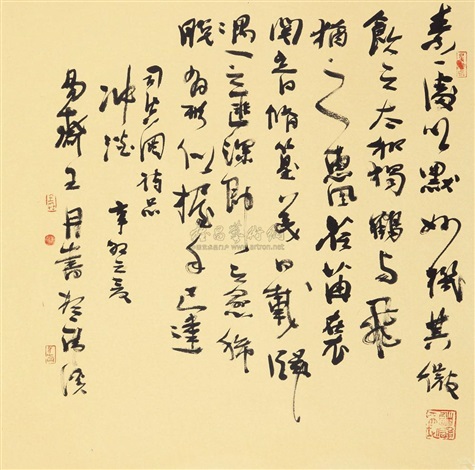 素處以默妙機其微
飲之太和獨鶴與飛
猶之惠風荏苒在衣
閱音脩篁美曰載歸
遇之匪深即之愈希
脫有形似握手已違
司空图詩品
冲淡 辛卯之夏
王月
雅昌藝術網
artron.net